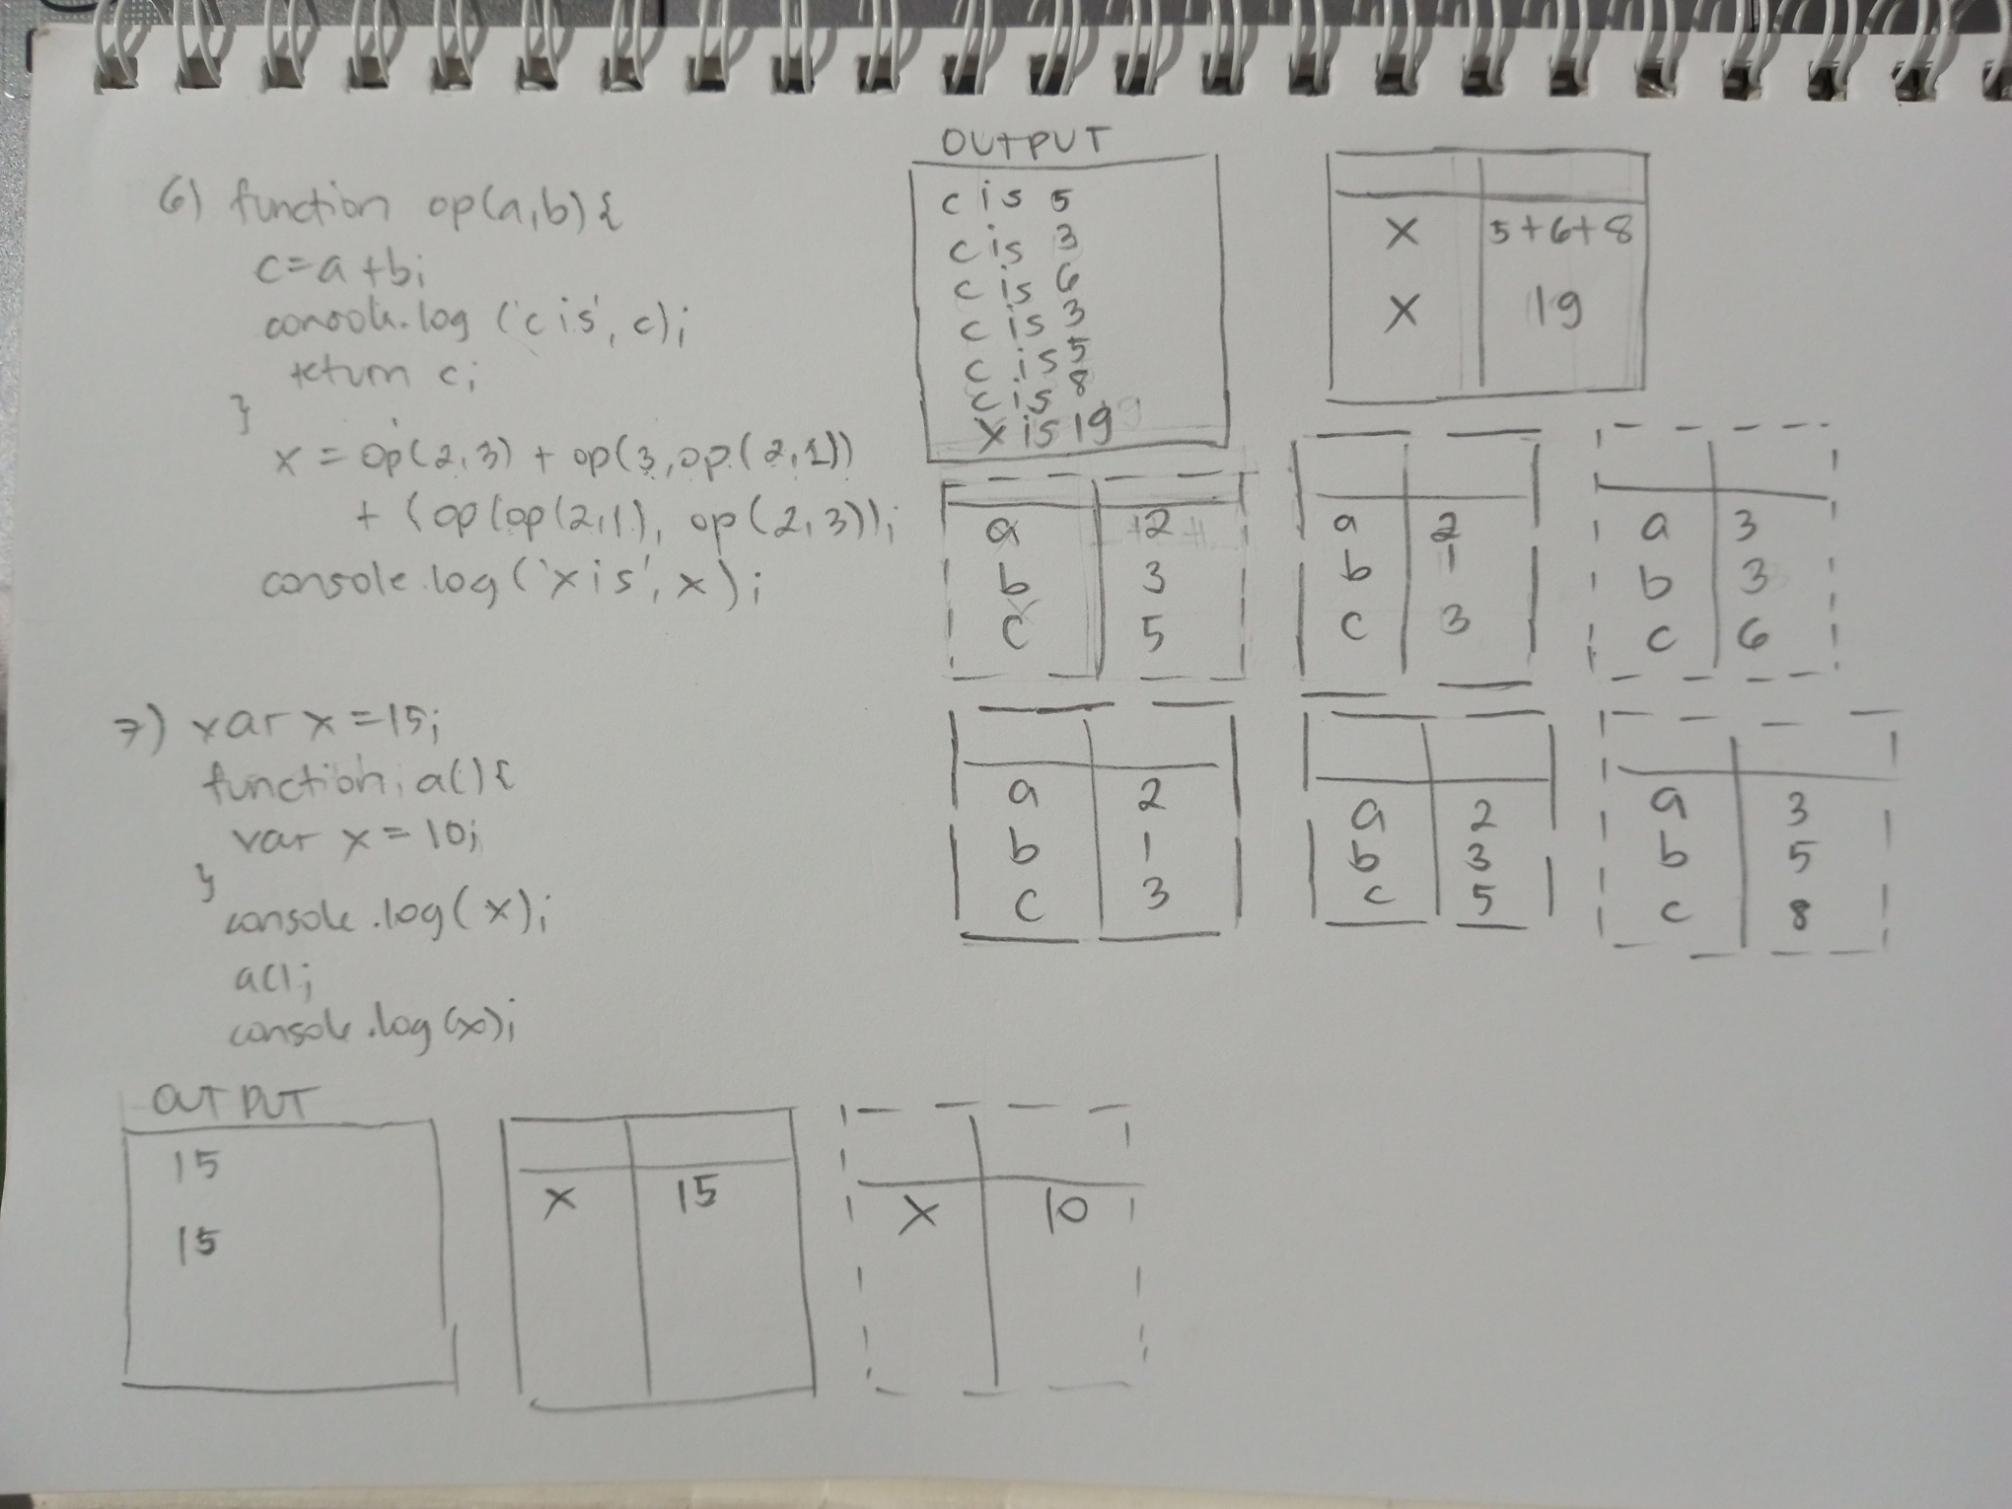 6) function op(a,b){
c=a+b;
console.log ('c is', c);
return c;
}
x = op(2,3) + op(3,op(2,1))
+ (op(op(2,1), op(2,3));
console.log('x is', x);
OUTPUT
c is 5
c is 3
c is 6
c is 3
c is 5
c is 8
x is 19
x 5+6+8
x 19
a 2
b 3
c 5
a 2
b 1
c 3
a 3
b 3
c 6
a 2
b 1
c 3
a 2
b 3
c 5
a 3
b 5
c 8
7) var x = 15;
function a(){
var x = 10;
}
console.log(x);
a();
console.log(x);
OUTPUT
15
15
x 15
x 10